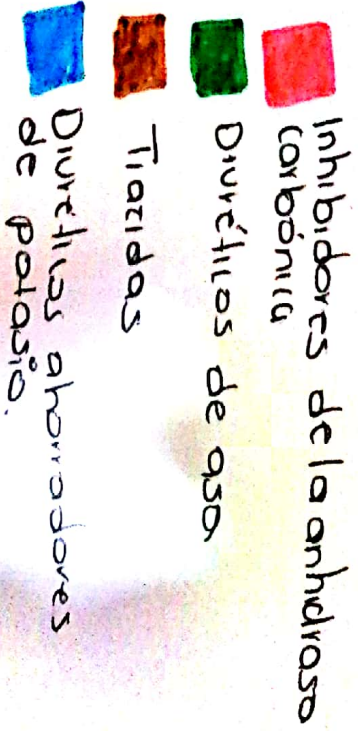 Inhibidores de la anhidrasa
carbónica
Diuréticos de asa
Tiazidas
Diuréticos ahorradores
de potasio.